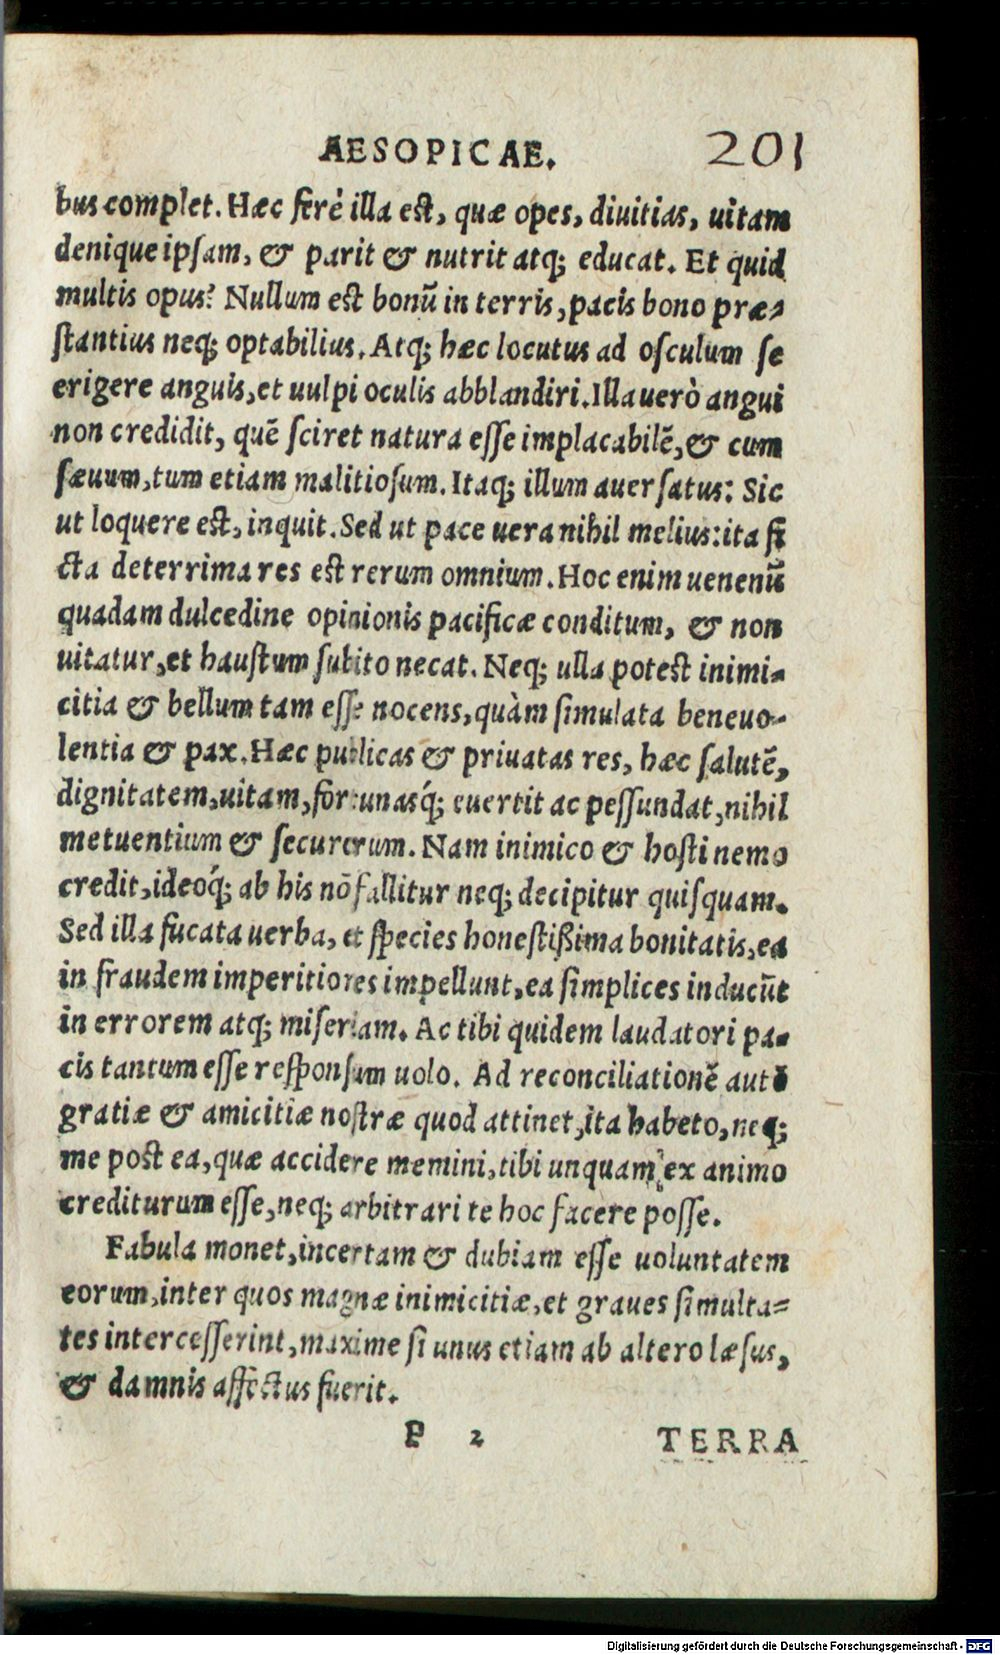 AESOPICAE. 201
bus complet. Hæc ferè illa est, quæ opes, diuitias, uitam
denique ipſam, & parit & nutrit atq; educat. Et quid
multis opus? Nullum est bonū in terris, pacis bono præ-
ſtantius neq; optabilius. Atq; hæc locutus ad oſculum ſe
erigere anguis, et uulpi oculis abblandiri. Illa uerò angui
non credidit, quē ſciret natura eſſe implacabilē, & cum
ſæuum, tum etiam malitioſum. Itaq; illum auerſatus: Sic
ut loquere est, inquit. Sed ut pace uera nihil melius: ita fi
cta deterrima res est rerum omnium. Hoc enim uenenū
quadam dulcedine opinionis pacificæ conditum, & non
uitatur, et hauſtum ſubito necat. Neq; ulla potest inimi-
citia & bellum tam eſſe nocens, quàm ſimulata beneuo-
lentia & pax. Hæc publicas & priuatas res, hæc ſalutē,
dignitatem, uitam, fortunasq́; euertit ac peſſundat, nihil
metuentium & ſecurorum. Nam inimico & hoſti nemo
credit, ideoq́; ab his nō fallitur neq; decipitur quiſquam.
Sed illa fucata uerba, et ſpecies honeſtißima bonitatis, ea
in fraudem imperitiores impellunt, ea ſimplices inducūt
in errorem atq; miſeriam. Ac tibi quidem laudatori pa-
cis tantum eſſe reſponſum uolo. Ad reconciliationē autē
gratiæ & amicitiæ noſtræ quod attinet, ita habeto, neq;
me post ea, quæ accidere memini, tibi unquam ex animo
crediturum eſſe, neq; arbitrari te hoc facere poſſe.
Fabula monet, incertam & dubiam eſſe uoluntatem
eorum, inter quos magnæ inimicitiæ, et graues ſimulta-
tes interceſſerint, maxime ſi unus etiam ab altero læſus,
& damnis affectus fuerit.
P 2 TERRA
Digitalisierung gefördert durch die Deutsche Forschungsgemeinschaft - DFG